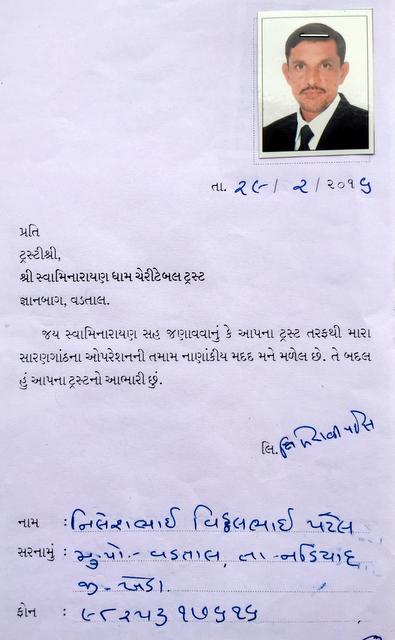 તા. ૨૯/૨/૨૦૧૬
પ્રતિ
ટ્રસ્ટીશ્રી,
શ્રી સ્વામિનારાયણ ધામ ચેરીટેબલ ટ્રસ્ટ
જ્ઞાનબાગ, વડતાલ.
જય સ્વામિનારાયણ સહ જણાવવાનું કે આપના ટ્રસ્ટ તરફથી મારા
સારણગાંઠના ઓપરેશનની તમામ નાણાંકીય મદદ મને મળેલ છે. તે બદલ
હું આપના ટ્રસ્ટનો આભારી છું.
લિ.
નામ : નિલેશભાઈ વિઠ્ઠલભાઈ પટેલ
સરનામું : મુ.પો.- વડતાલ, તા.- નડિયાદ
જી- ખેડા.
ફોન : ૯૮૨૫૩ ૧૭૫૧૬